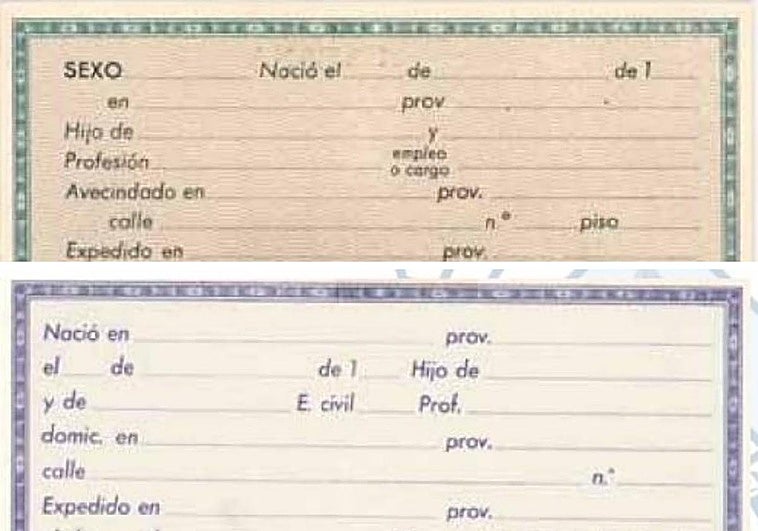 SEXO Nació el de de 1
en prov
Hijo de y
Profesión empleo o cargo
Avecindado en prov.
calle n.º piso
Expedido en prov.
Nació en prov.
el de de 1 Hijo de
y de E. civil Prof.
domic. en prov.
calle n.º
Expedido en prov.